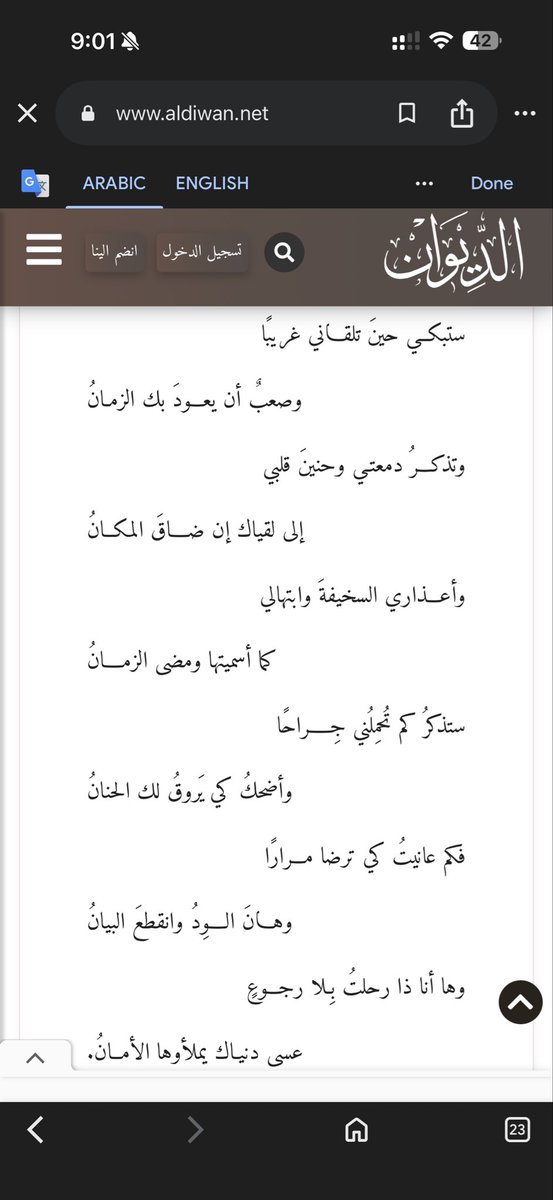 9:01
42
www.aldiwan.net
ARABIC ENGLISH Done
الدِّيوَان
تسجيل الدخول
انضم الينا
ستبكـي حينَ تلقـاني غريبًا
وصعبٌ أن يعـودَ بك الزمـانُ
وتذكـرُ دمعتـي وحنينَ قلبي
إلى لقياك إن ضـاقَ المكـانُ
وأعـذاري السخيفةَ وابتهالي
كما أسميتها ومضى الزمـانُ
ستذكرُ كم تُحمِلُني جِـراحًا
وأضحكُ كي يَروقُ لك الحنانُ
فكم عانيتُ كي ترضا مـرارًا
وهـانَ الـوِدُ وانقطعَ البيانُ
وها أنا ذا رحلتُ بِلا رجـوعٍ
عسى دنيـاك يملأوها الأمـانُ.
23